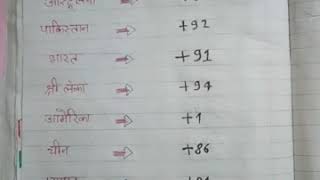 पाकिस्तान ⇒ +92
भारत ⇒ +91
श्री लंका ⇒ +94
अमेरिका ⇒ +1
चीन ⇒ +86